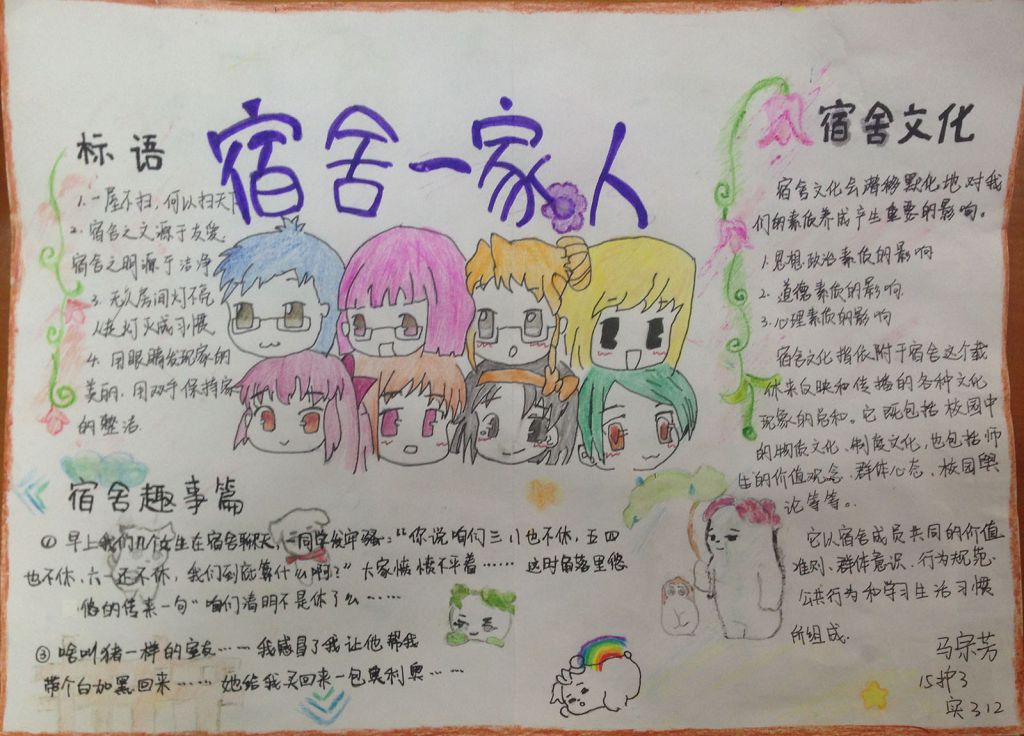 宿舍一家人
标语
1.一屋不扫,何以扫天下
2.宿舍之文源于友爱,
宿舍之明源于洁净
3.无人房间灯不亮
人走灯灭成习惯
4.用眼睛发现家的
美丽.用双手保持家
的整洁.
宿舍趣事篇
① 早上我们几个女生在宿舍聊天,一同学发牢骚:“你说咱们三八也不休,五四
也不休,六一还不休,我们到底算什么啊?”大家愤愤不平着……这时角落里悠
悠的传来一句“咱们清明不是休了么……
③ 啥叫猪一样的室友……我感冒了我让他帮我
带个白加黑回来……她给我买回来一包奥利奥……
宿舍文化
宿舍文化会潜移默化地对我
们的素质养成产生重要的影响。
1.思想政治素质的影响
2.道德素质的影响
3.心理素质的影响
宿舍文化指依附于宿舍这个载
体来反映和传播的各种文化
现象的总和。它既包括校园中
的物质文化、制度文化,也包括师
生的价值观念、群体心态、校园舆
论等等。
它以宿舍成员共同的价值
准则、群体意识、行为规范.
公共行为和学习生活习惯
所组成.
马宗芳
15护3
实312